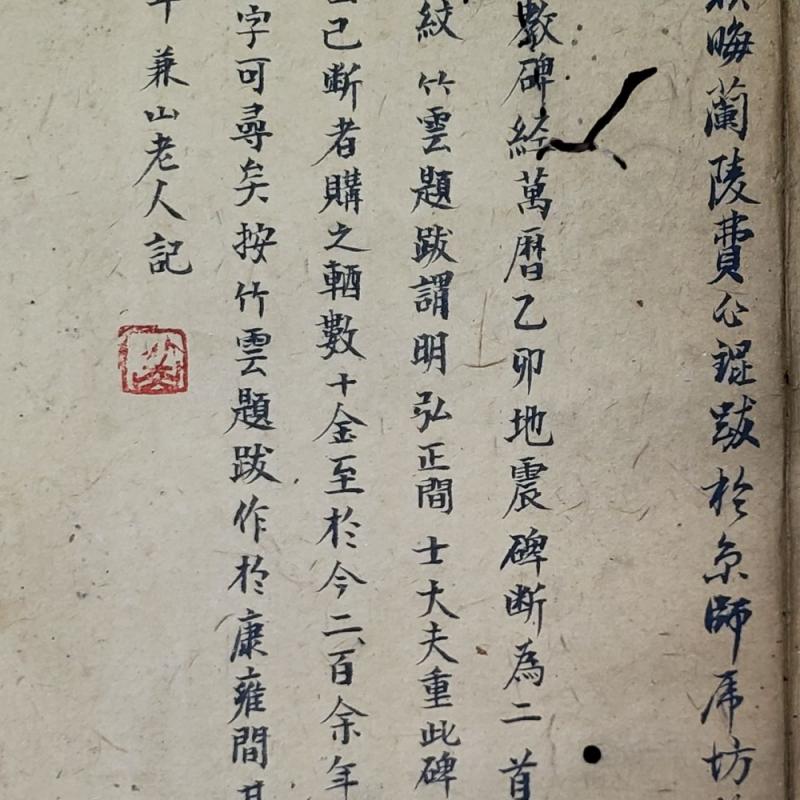 晦蘭陵費心錕跋於京師虎坊
數碑經萬曆乙卯地震碑斷為二首
紋竹雲題跋謂明弘正間士大夫重此碑
已斷者購之輒數十金至於今二百余年
字可尋矣按竹雲題跋作於康雍間
年兼山老人記